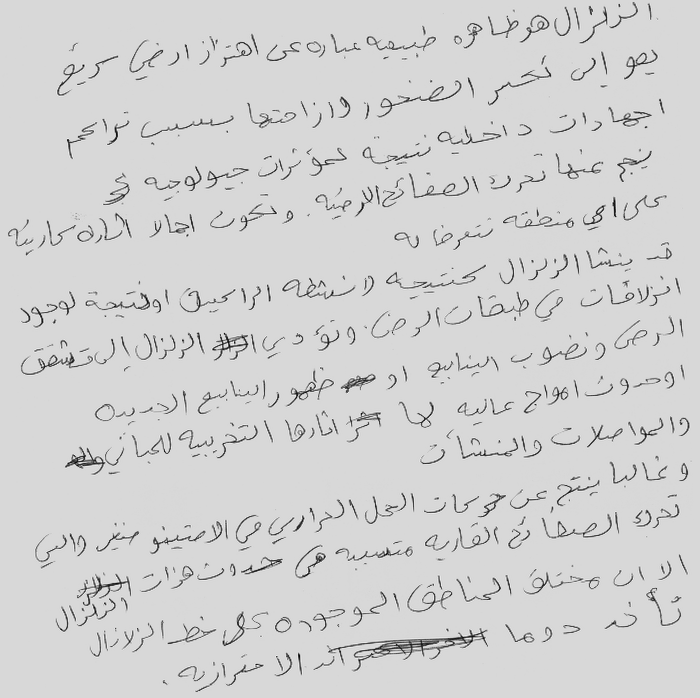 الزلزال هو ظاهره طبيعيه عباره عن اهتزاز ارضي سريع
يعو إلى تكسر الصخور وازاحتها بسبب تراكم
اجهادات داخليه نتيجة لمؤثرات جيولوجيه
ينجم عنها تحرك الصفائح الارضيه. وتكون اجمالا اثاره كارثيه
على اي منطقه تتعرض له
قد ينشا الزلزال كنتيجه لانشطه البراكين اونتيجة لوجود
انزلاقات في طبقات الرض. وتؤدي الزلزال إلى تشقق
الرض ونضوب الينابيع او ظهور الينابيع الجديده
اوحدوث امواج عاليه لها اثارها التخريبيه للمباني
والمواصلات والمنشأت
وغالبا ينتج عن حركات الحمل الحراري في الاستينو سفير والتي
تحرك الصفائح القاريه متسببه في حدوث هزات
الزلزال
الا ان مختلف المناطق الموجوده على خط الزلازال
تأخد دوما الاحترازيه.